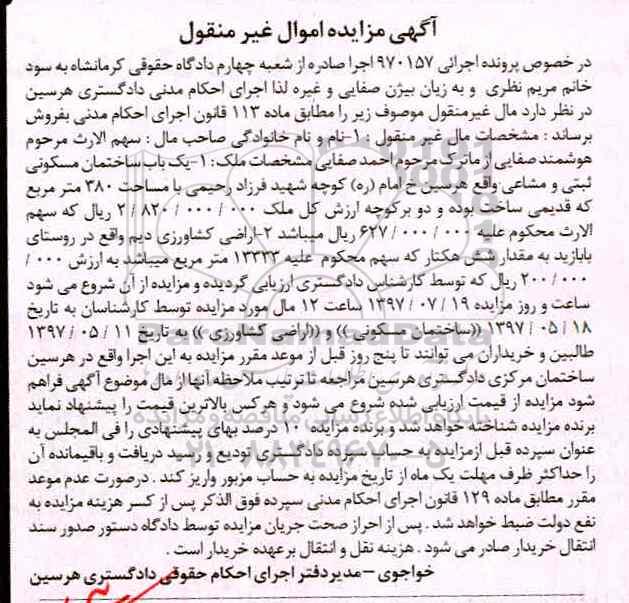 آگهی مزایده اموال غیر منقول
در خصوص پرونده اجرائی ۹۷۰۱۵۷ اجرا صادره از شعبه چهارم دادگاه حقوقی کرمانشاه به سود
خانم مریم نظری و به زیان بیژن صفایی و غیره لذا اجرای احکام مدنی دادگستری هرسین
در نظر دارد مال غیرمنقول موصوف زیر را مطابق ماده ۱۱۳ قانون اجرای احکام مدنی بفروش
برساند : مشخصات مال غیر منقول : ۱-نام و نام خانوادگی صاحب مال : سهم الارث مرحوم
هوشمند صفایی از ماترک مرحوم احمد صفایی مشخصات ملک: ۱-یک باب ساختمان مسکونی
ثبتی و مشاعی واقع هرسین خ امام (ره) کوچه شهید فرزاد رحیمی با مساحت ۳۸۰ متر مربع
که قدیمی ساخت بوده و دو برکوچه ارزش کل ملک ۰۰۰ / ۰۰۰ / ۸۲۰ / ۲ ریال که سهم
الارث محکوم علیه ۰۰۰ / ۰۰۰ / ۶۲۷ ریال میباشد ۲-اراضی کشاورزی دیم واقع در روستای
بابازید به مقدار شش هکتار که سهم محکوم علیه ۱۳۳۳۳ متر مربع میباشد به ارزش ۰۰۰ /
۰۰۰ / ۲۰۰ ریال که توسط کارشناس دادگستری ارزیابی گردیده و مزایده از آن شروع می شود
ساعت و روز مزایده ۱۹ / ۰۷ / ۱۳۹۷ ساعت ۱۲ مال مورد مزایده توسط کارشناسان به تاریخ
۱۸ / ۰۵ / ۱۳۹۷ ((ساختمان مسکونی )) و ((اراضی کشاورزی )) به تاریخ ۱۱ / ۰۵ / ۱۳۹۷
طالبین و خریداران می توانند تا پنج روز قبل از موعد مقرر مزایده به این اجرا واقع در هرسین
ساختمان مرکزی دادگستری هرسین مراجعه تا ترتیب ملاحظه آنها از مال موضوع آگهی فراهم
شود مزایده از قیمت ارزیابی شده شروع می شود و هرکس بالاترین قیمت را پیشنهاد نماید
برنده مزایده شناخته خواهد شد و برنده مزایده ۱۰ درصد بهای پیشنهادی را فی المجلس به
عنوان سپرده قبل ازمزایده به حساب سپرده دادگستری تودیع و رسید دریافت و باقیمانده آن
را حداکثر ظرف مهلت یک ماه از تاریخ مزایده به حساب مزبور واریز کند . درصورت عدم موعد
مقرر مطابق ماده ۱۲۹ قانون اجرای احکام مدنی سپرده فوق الذکر پس از کسر هزینه مزایده به
نفع دولت ضبط خواهد شد . پس از احراز صحت جریان مزایده توسط دادگاه دستور صدور سند
انتقال خریدار صادر می شود . هزینه نقل و انتقال برعهده خریدار است .
خواجوی – مدیر دفتر اجرای احکام حقوقی دادگستری هرسین